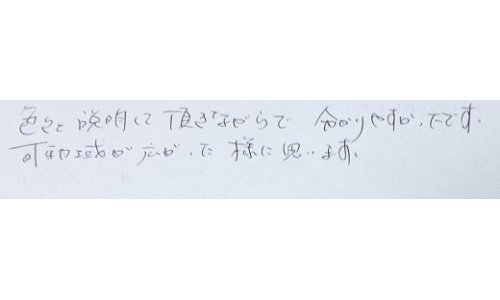 色々と説明して頂きながらで 分かりやすかったです。
可動域が広がった様に思います。